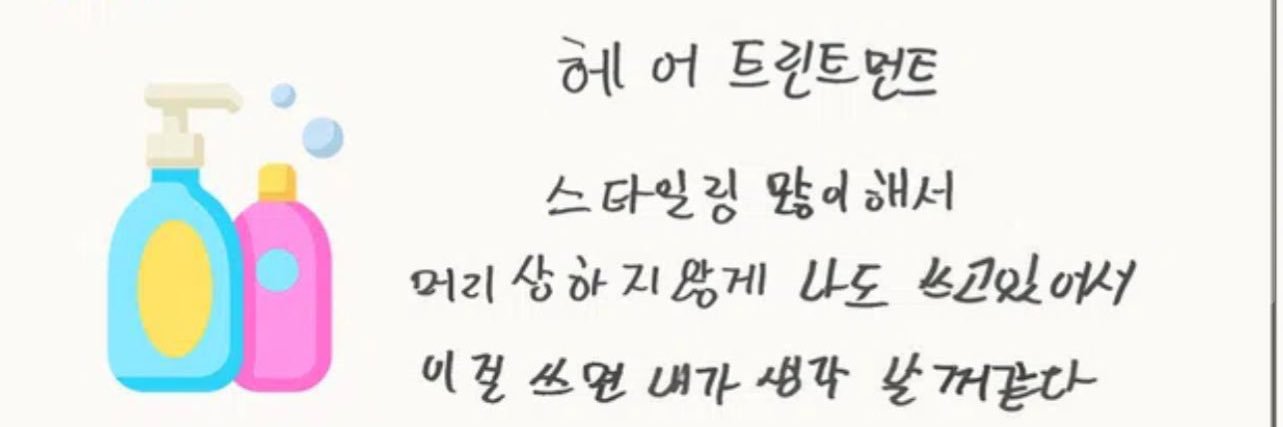 헤어 트린트먼트
스타일링 많이해서
머리 상하지않게 나도 쓰고있어서
이걸 쓰면 내가 생각 날꺼같다